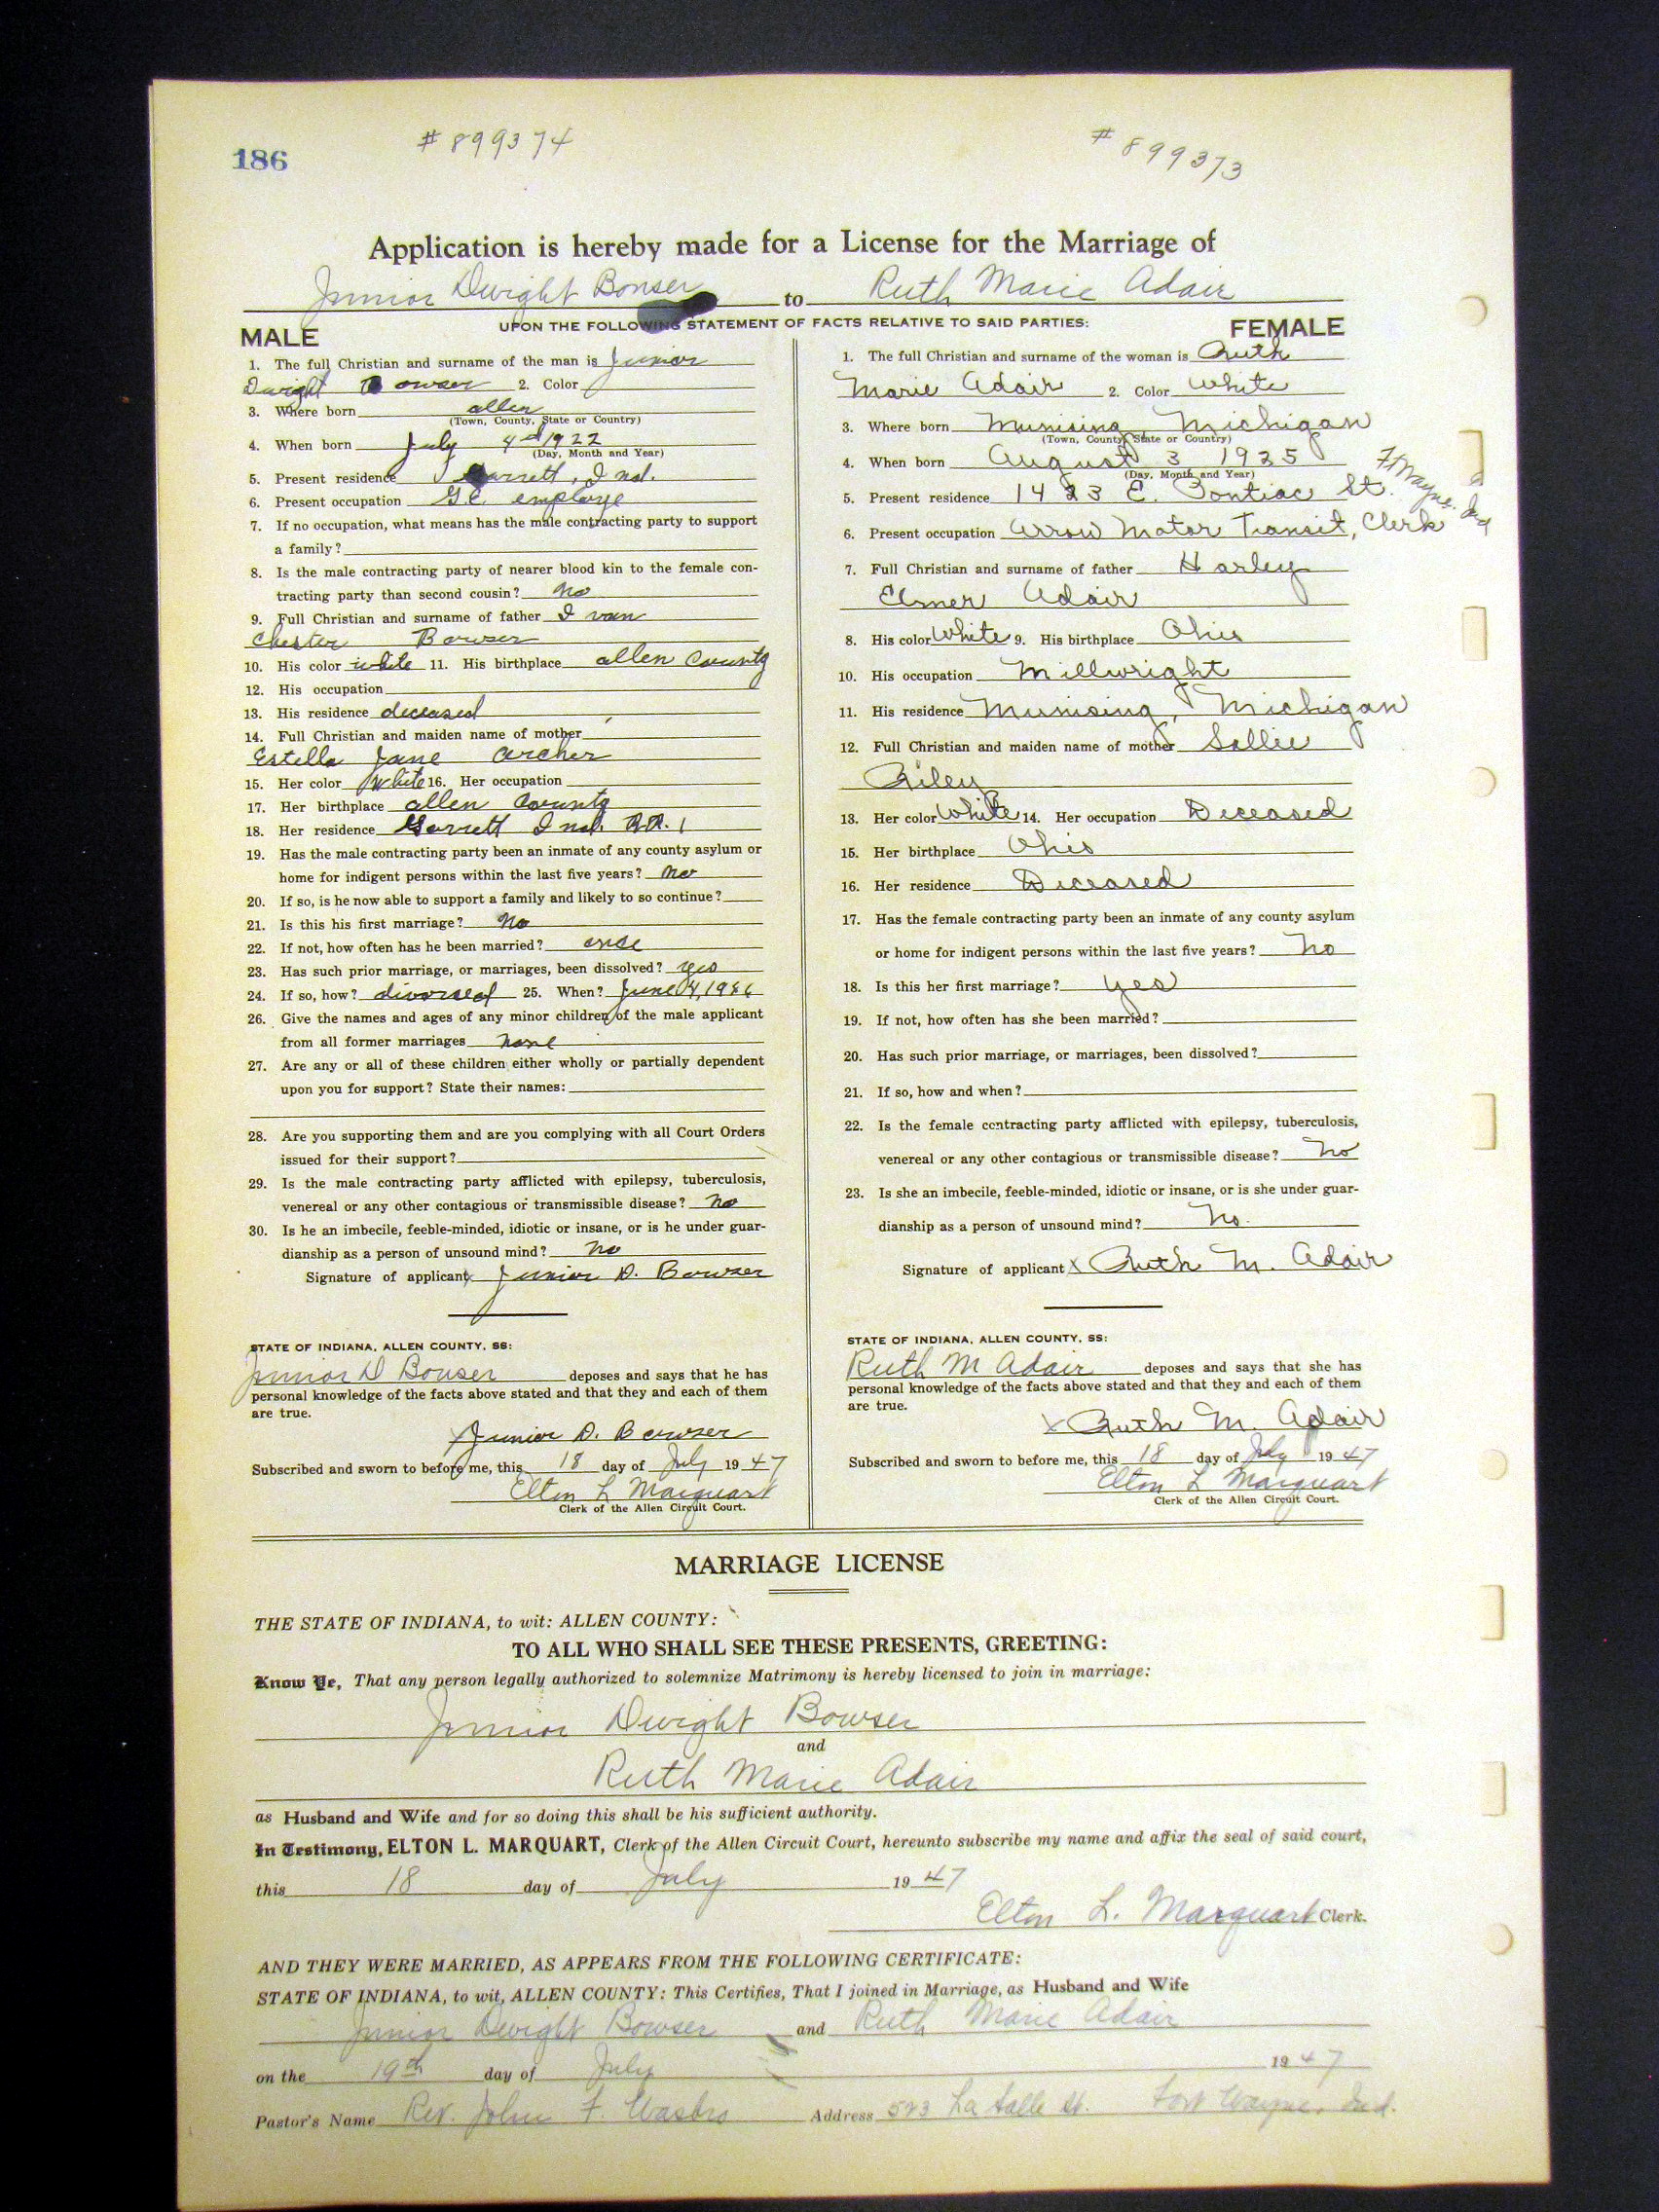 186
# 899374
# 899373
Application is hereby made for a License for the Marriage of
Junior Dwight Bowser to Ruth Marie Adair
UPON THE FOLLOWING STATEMENT OF FACTS RELATIVE TO SAID PARTIES:
MALE
1. The full Christian and surname of the man is Junior
Dwight Bowser 2. Color
3. Where born allen
(Town, County, State or Country)
4. When born July 4 1922
(Day, Month and Year)
5. Present residence Garrett, Ind.
6. Present occupation G.E. employe
7. If no occupation, what means has the male contracting party to support
a family?
8. Is the male contracting party of nearer blood kin to the female con-
tracting party than second cousin? no
9. Full Christian and surname of father Ivan
Chester Bowser
10. His color white 11. His birthplace allen county
12. His occupation
13. His residence deceased
14. Full Christian and maiden name of mother
Estella Jane Archer
15. Her color White 16. Her occupation
17. Her birthplace allen county
18. Her residence Garrett Ind. RR. 1
19. Has the male contracting party been an inmate of any county asylum or
home for indigent persons within the last five years? no
20. If so, is he now able to support a family and likely to so continue?
21. Is this his first marriage? No
22. If not, how often has he been married? once
23. Has such prior marriage, or marriages, been dissolved? yes
24. If so, how? divorsed 25. When? June
26. Give the names and ages of any minor children of the male applicant
from all former marriages none
27. Are any or all of these children either wholly or partially dependent
upon you for support? State their names:
28. Are you supporting them and are you complying with all Court Orders
issued for their support?
29. Is the male contracting party afflicted with epilepsy, tuberculosis,
venereal or any other contagious or transmissible disease? no
30. Is he an imbecile, feeble-minded, idiotic or insane, or is he under guar-
dianship as a person of unsound mind? no
Signature of applicant x Junior D. Bowser
STATE OF INDIANA, ALLEN COUNTY, SS:
Junior D Bowser deposes and says that he has
personal knowledge of the facts above stated and that they and each of them
are true.
x Junior D. Bowser
Subscribed and sworn to before me, this 18 day of July 19 47
Elton L Marquart
Clerk of the Allen Circuit Court.
FEMALE
1. The full Christian and surname of the woman is Ruth
Marie Adair 2. Color White
3. Where born Munising, Michigan
(Town, County, State or Country)
4. When born August 3 1925
(Day, Month and Year)
5. Present residence 1423 E. Pontiac St. Ft Wayne. Ind
6. Present occupation Arrow Motor Transit, Clerk
7. Full Christian and surname of father Harley
Elmer Adair
8. His color White 9. His birthplace Ohio
10. His occupation Millwright
11. His residence Munising, Michigan
12. Full Christian and maiden name of mother Sallie
Riley
13. Her color White 14. Her occupation Deceased
15. Her birthplace Ohio
16. Her residence Deceased
17. Has the female contracting party been an inmate of any county asylum
or home for indigent persons within the last five years? No
18. Is this her first marriage? yes
19. If not, how often has she been married?
20. Has such prior marriage, or marriages, been dissolved?
21. If so, how and when?
22. Is the female contracting party afflicted with epilepsy, tuberculosis,
venereal or any other contagious or transmissible disease? No
23. Is she an imbecile, feeble-minded, idiotic or insane, or is she under guar-
dianship as a person of unsound mind? No.
Signature of applicant x Ruth M. Adair
STATE OF INDIANA, ALLEN COUNTY, SS:
Ruth M Adair deposes and says that she has
personal knowledge of the facts above stated and that they and each of them
are true.
x Ruth M. Adair
Subscribed and sworn to before me, this 18 day of July 19 47
Elton L Marquart
Clerk of the Allen Circuit Court.
MARRIAGE LICENSE
THE STATE OF INDIANA, to wit: ALLEN COUNTY:
TO ALL WHO SHALL SEE THESE PRESENTS, GREETING:
Know Ye, That any person legally authorized to solemnize Matrimony is hereby licensed to join in marriage:
Junior Dwight Bowser
and
Ruth Marie Adair
as Husband and Wife and for so doing this shall be his sufficient authority.
In Testimony, ELTON L. MARQUART, Clerk of the Allen Circuit Court, hereunto subscribe my name and affix the seal of said court,
this 18 day of July 19 47
Elton L. Marquart Clerk.
AND THEY WERE MARRIED, AS APPEARS FROM THE FOLLOWING CERTIFICATE:
STATE OF INDIANA, to wit, ALLEN COUNTY: This Certifies, That I joined in Marriage, as Husband and Wife
Junior Dwight Bowser and Ruth Marie Adair
on the 19th day of July 19 47
Pastor's Name Rev. John F. Address 523 La Salle St. Fort Wayne, Ind.